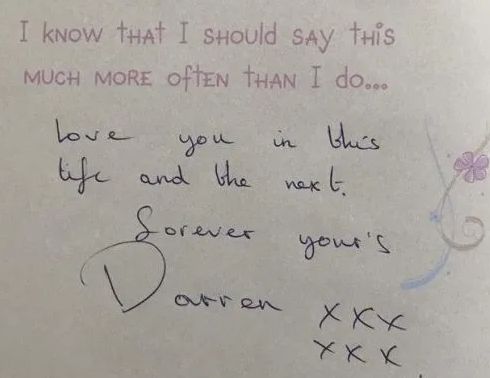 I KNOW THAT I SHOULD SAY THIS
MUCH MORE OFTEN THAN I DO...
Love you in this
life and the next.
forever your's
Darren xxx
xxx